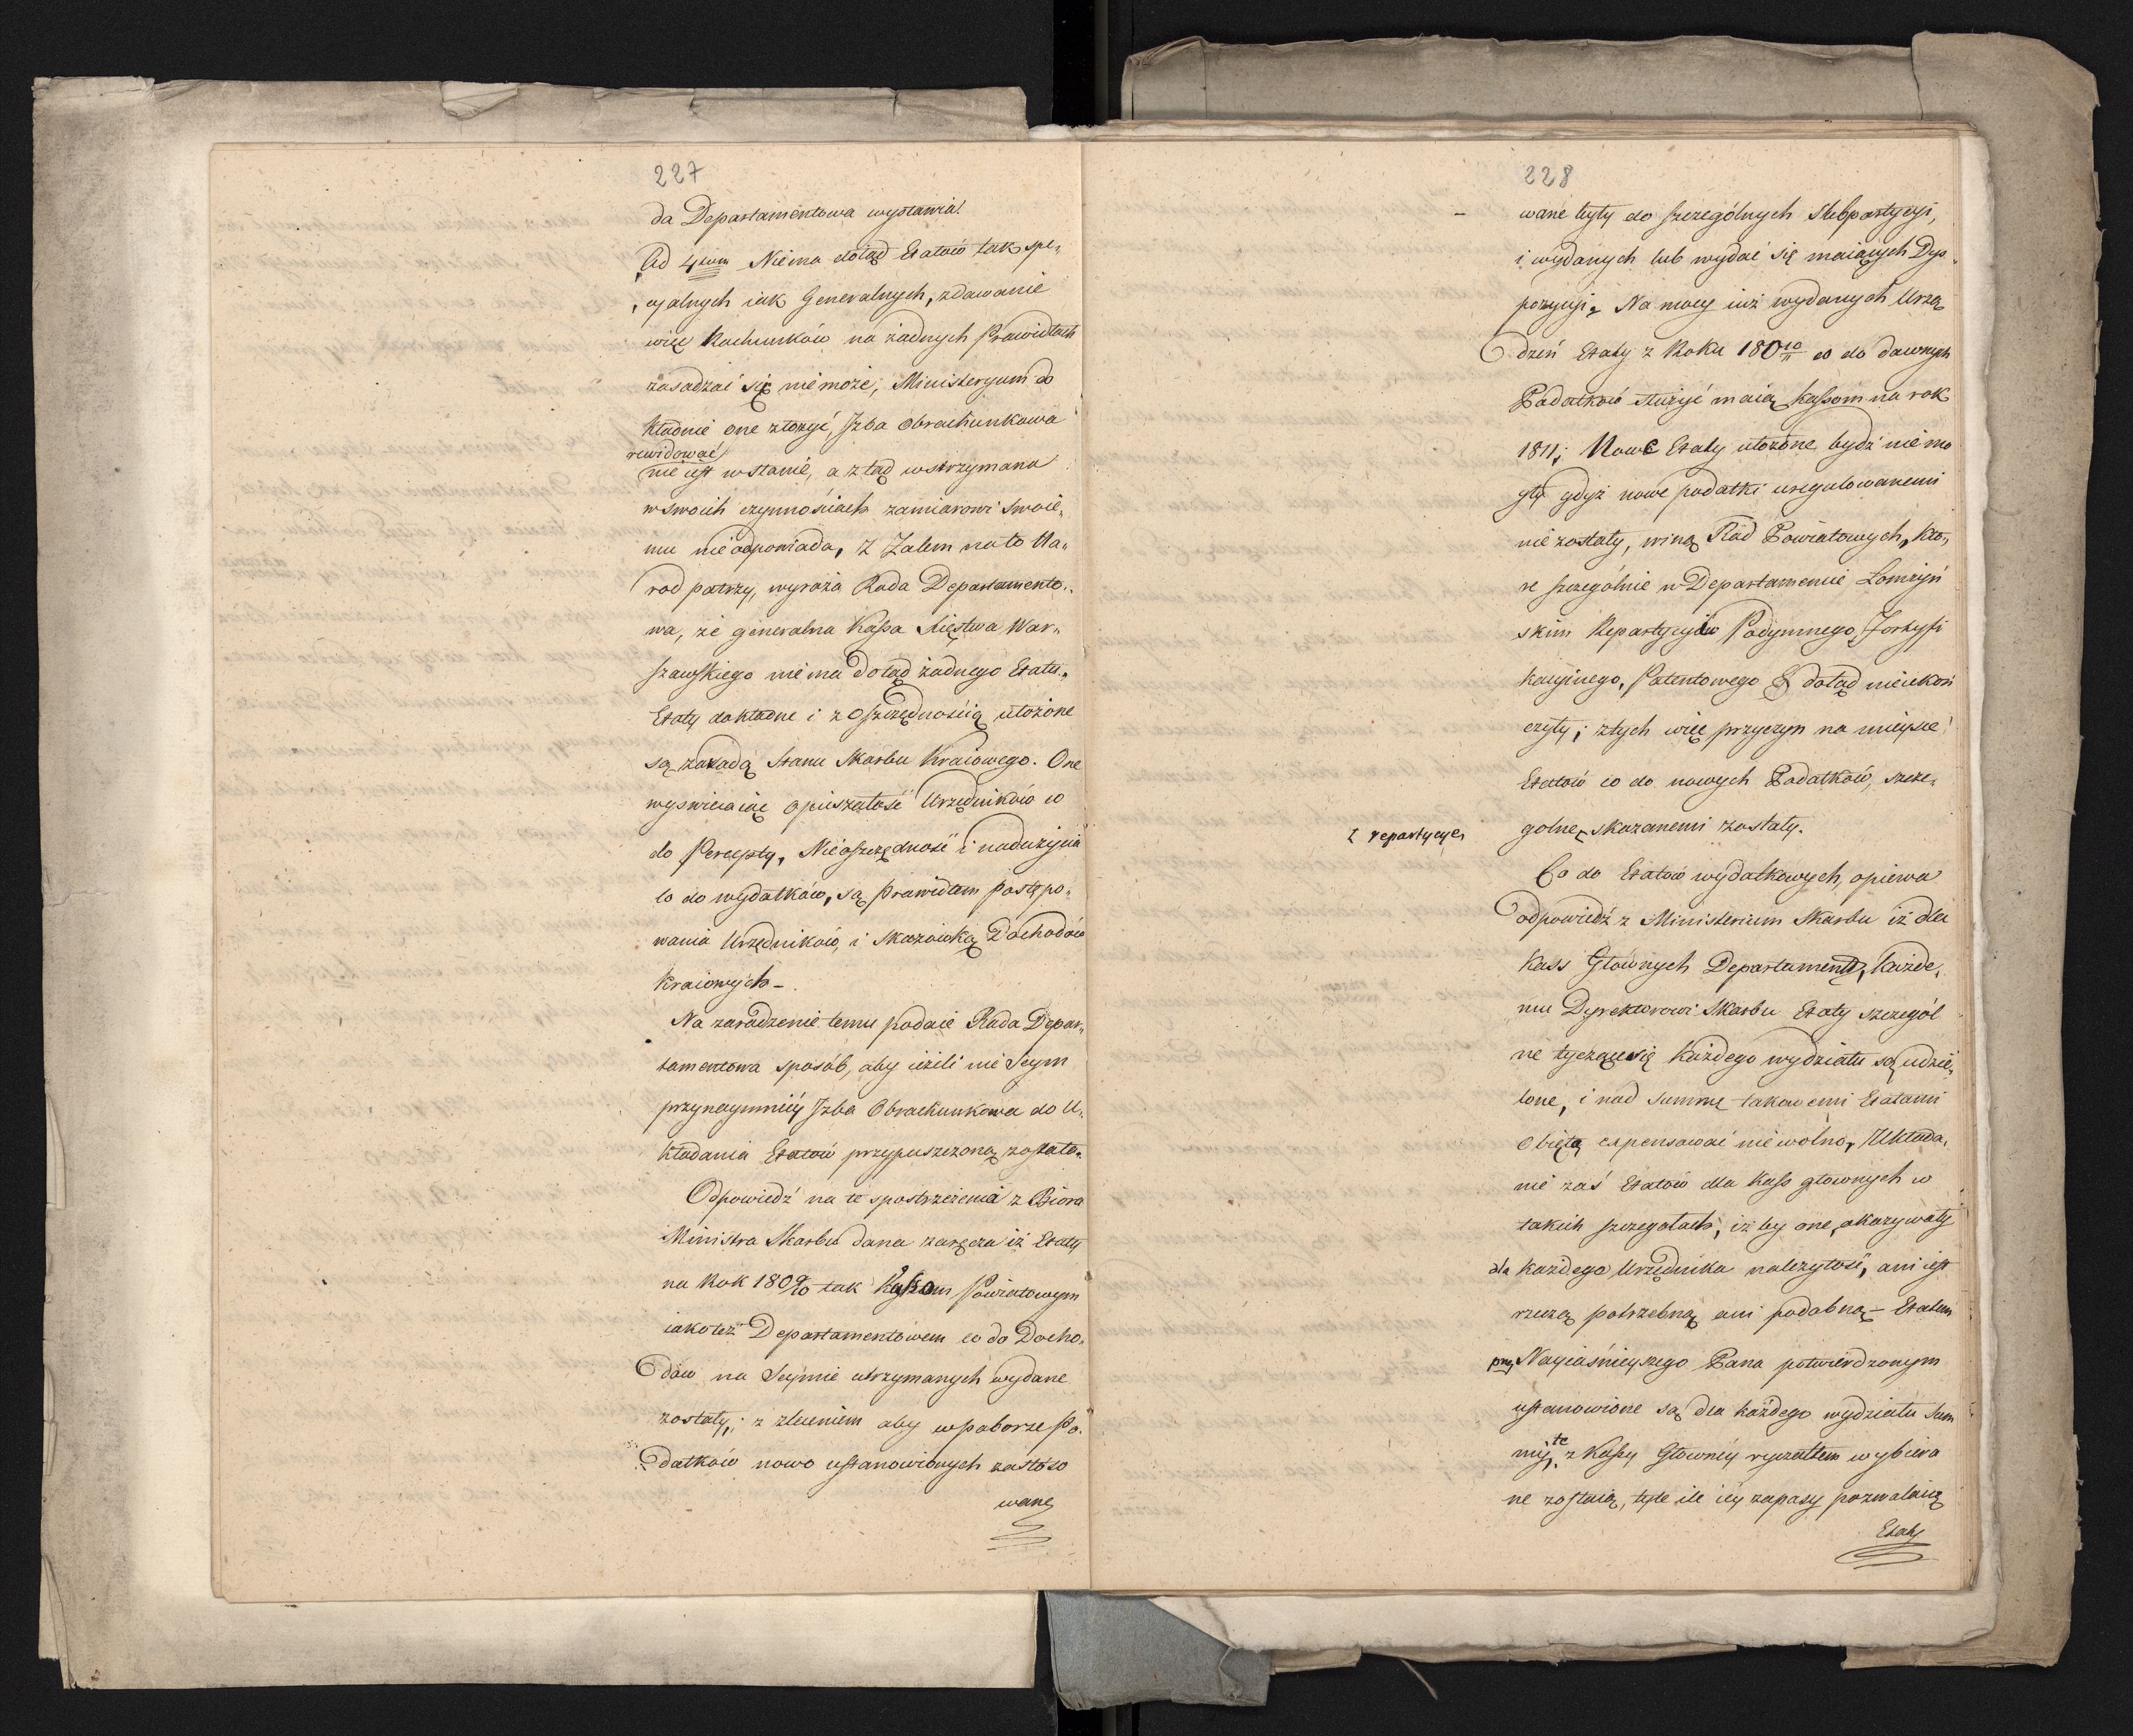 227
da Departamentowa wystawia!
Ad 4tum Niema dotąd Etatow tak spe„
„cyalnych iak Generalnych, zdawanie
więc Rachunków na żadnych Prawidłach
zasadzać się nie może, Ministeryum do
kładnie one złożyć, Jzba Obrachunkowa
rewidować
nie iest wstanie, a ztąd wstrzymana
w swoich czynnościach zamiarowi swoie„
mu nie odpowiada, Z Zalem na to Na„
rod patrzy, wyraża Rada Departamento„
wa, że generalna Kassa Xięstwa War„
szawskiego nie ma dotąd żadnego Etatu„
Etaty dokładne i z Oszczędnością ułożone
są zasadą Stanu Skarbu Kraiowego. One
wyswiecaiąc opieszałość Urzędników co
do Percepty, Nieoszczędność i nadużycia
co do wydatków, są Prawidłem postępo„
wania Urzędników, i Skazowką Dochodów
Kraiowych –
Na zaradzenie temu podaie Rada Depar„
tamentowa sposób, aby ieżeli nie Seym
przynaymniey Jzba Obrachunkowa do U„
kładania Etatow przypuszczoną została„
Odpowiedź na te spostrzeżenia z Biora
Ministra Skarbu dana zaręcza iż Etaty
na Rok 1809/10 tak Kassom Powiatowym
iakoteż Departamentowem co do Docho„
dów na Seymie utrzymanych wydane
zostały; z zleceniem aby w poborze Po„
datków nowo ustanowionych zastoso
wane
228
wane były do szczególnych Subpartycyi,
i wydanych lub wydać się maiących Dys„
pozycyi„ Na mocy iuż wydanych Urzą
dzeń Etaty z Roku 1810/11 co do dawnych
Podatków służyć maią Kassom na rok
1811; Nowe Etaty ułożone bydź nie mo
gły gdyż nowe podatki uregulowanemi
nie zostały, winą Rad Powiatowych, któ„
re szczególnie w Departamencie Łomżyń
skim Repartycyiów Podymnego, Forty fi
kacyinego, Patentowego & dotąd nieukoń
czyły; z tych więc przyczyn na mieysce
Etatów co do nowych Podatków, szcze„
golne skazanemi zostały.
repartycye
Co do Etatów wydatkowych, opiewa
odpowiedź z Ministerium Skarbu iż dla
Kass Głównych Departament, każde„
mu Dyrektorowi Skarbu Etaty szczegól
ne tyczące się każdego wydziału są udzie„
lone, i nad Summę takowemi Etatami
Obiętą expensować nie wolno, Układa„
nie zaś Etatów dla Kass głownych w
takich szczegołach, iż by one okazywały
dla każdego Urzędnika należytość, ani iest
rzeczą potrzebną ani podobną – Etatem
przez Nayiaśnieyszego Pana potwierdzonym
ustanowione są dla każdego wydziału Sum
my, te z Kassy Głowney ryczałtem wybiera
ne zostaią, tyle ile iey zapasy pozwalaią
Etaty